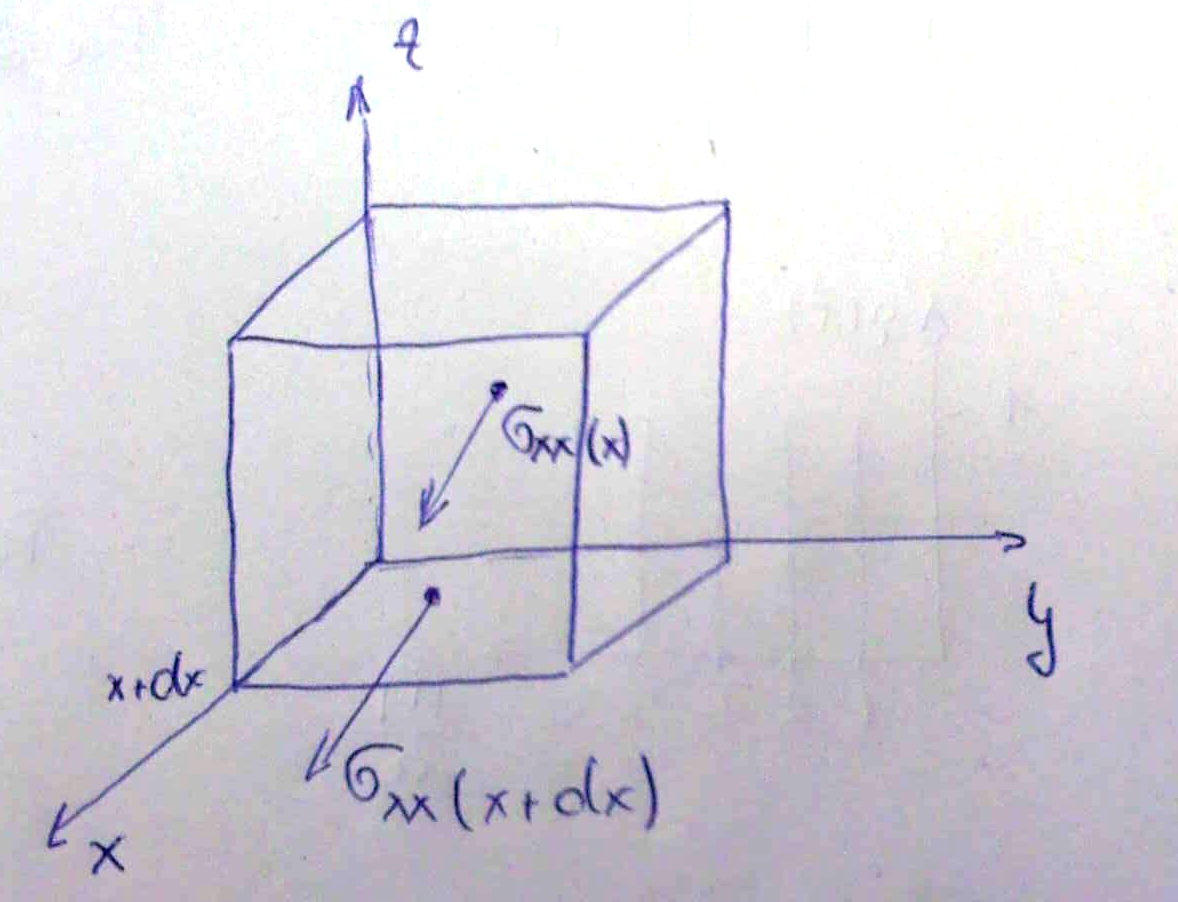 z
σxx(x)
y
x+dx
σxx(x+dx)
x